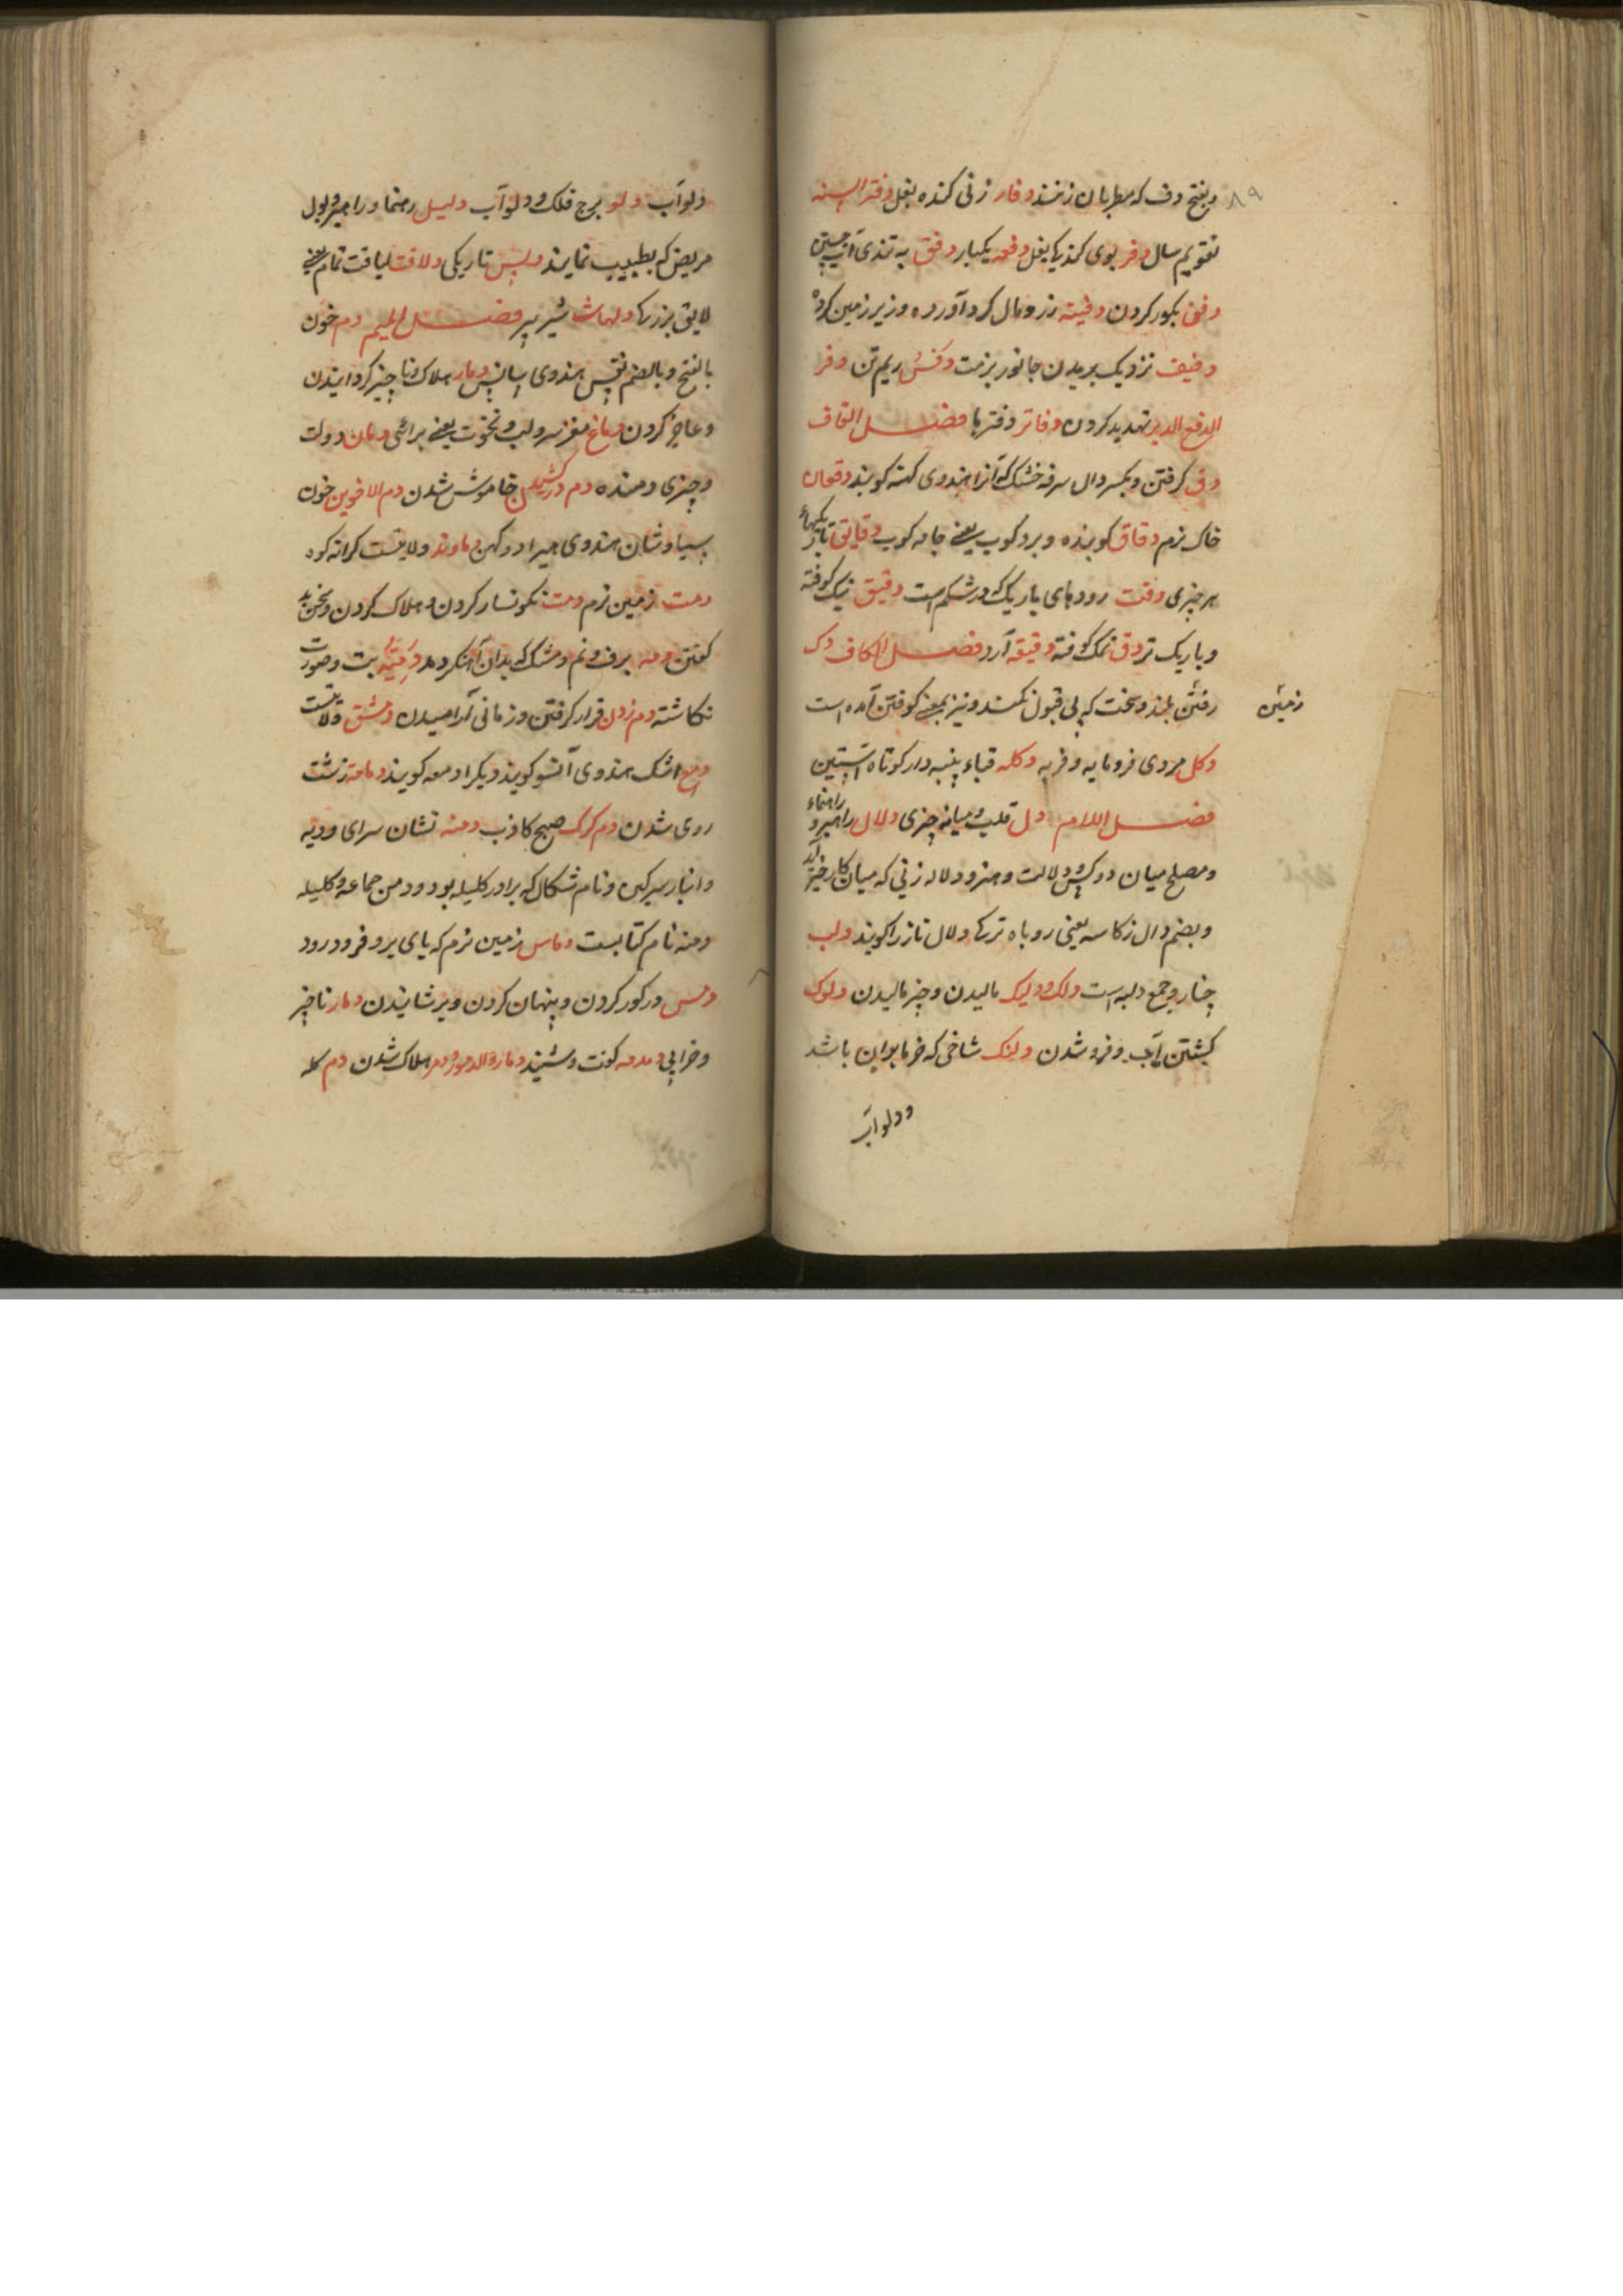 ۸۹
وبفتح دف که مطربان زنند دفار زنی کنده بغل دفتر السنه
تقویم سال دفر بوی کند یکا بغل دفعه یکبار دفق به تندی آب
دفن بکور کردن دفینه زر و مال کرد آورده و زیر زمین کرده
دفیف نزدیک پریدن جانور بزمین ریم تن دفر
الدفع تهدید کردن دفاتر دفترها فصل القاف
دق کرفتن وبکسر دال سرفه خشک که آنرا هندوی کهنه کویند دقعان
خاک نرم دقاق کوبنده و برد کوب یعنی جامه کوب دقایق باریکیهاء
هر چیزی دقت رودهای باریک که در شکم است دقیق نیک کوفته
وباریک تر دق نمک کوفته دقیقه آرد فصل الکاف دک
زمین
رفتن بلند و سخت که پی قبول نکند و نیز بمعنی کوفتن آمده است
دکل مردی فرومایه و فربه دکله قباء پنبه دار کوتاه آستین
فصل اللام دل قلب و میانه چیزی دلال راهبر و راهنماء
ومصلح میان دو کس و دلالت و هنر و دلاله زنی که میان کار خیر آید
وبضم دال زکاسه یعنی روباه ترکی دلال ناز را کویند دلب
چنار و جمع دلبه است دلک و دلیک مالیدن و چیز مالیدن دلوک
کشتن آب و فرو شدن دلنک شاخی که خرما بران باشد
ودلو آب
دلو آب دلو برج فلک و دلو آب دلیل رهنما و راهبر و بول
مریض که بطبیب نمایند دلیس تاریکی دلاقت لیاقت تمام یعنی
لایق بزرکی دلهاث شیر ببر فصل المیم دم خون
بالفتح وبالضم نفس هندوی سانس دمار هلاک و ناچیز کردانیدن
وعاجز کردن دماغ مغز سر و لب و نخوت یعنی برائی دمان دولت
وچیزی دمنده دم درکشیدن خاموش شدن دم الاخوین خون
سیاوشان هندوی هیرا دوکهن دماوند ولایتست کرانه کوه
دمث زمین نرم دمث نکونسار کردن و هلاک کردن و سخن بد
کفتن دمه برف و نم و مشک که بدان آهنکر دمد دمیه بت و صورت
نکاشته دم زدن قرار کرفتن و زمانی آرامیدن دمشق ولایتست
دمع اشک هندوی آنسو کویند و یکرا دمعه کویند دمامة زشت
روی شدن دم کرک صبح کاذب دمنه نشان سرای و دیه
وانبار سرکین و نام شکال که برادر کلیله بود و دمن جماعه و کلیله
ودمنه نام کتابست دماس زمین نرم که پای برو فرو رود
دمس در کور کردن و پنهان کردن و پوشانیدن دمار ناچیز
وخرابی دمدمه کوفت و شنید دمارة الدمور و دمر هلاک شدن دم کله